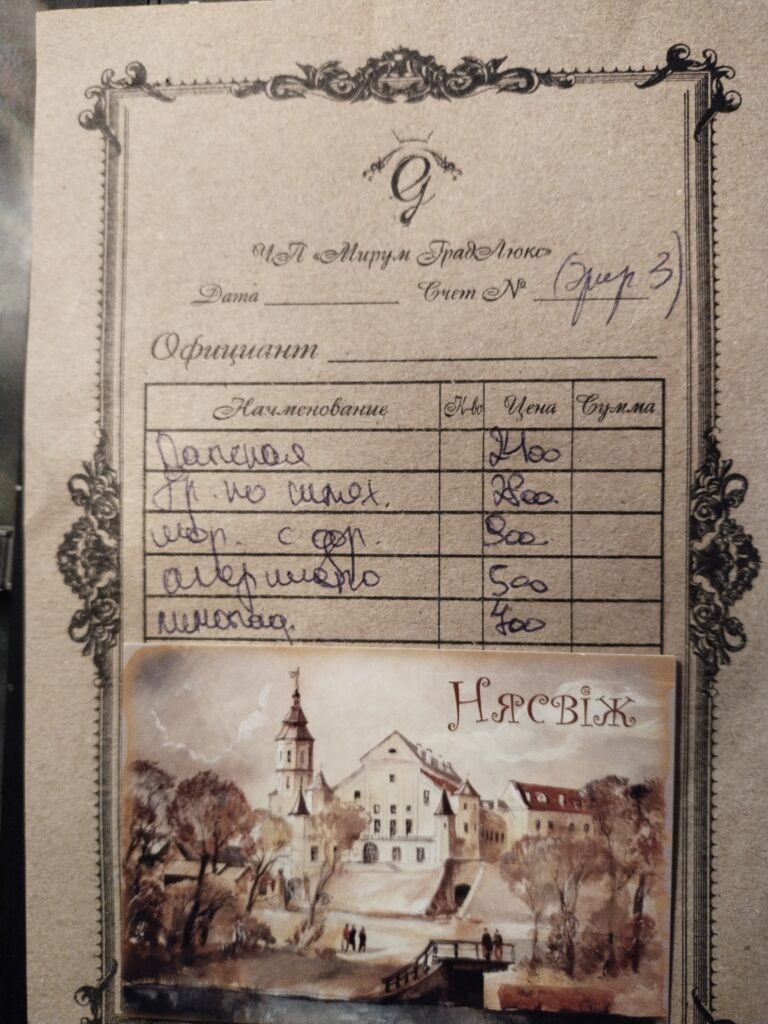 ЧП «Мирум ГрадЛюкс»
Дата Счет № 3)
Официант
Наименование К-во Цена Сумма
Папская 2400
гр. по 2800
мор. с фр. 900
500
лимонад 700
Нясвіж